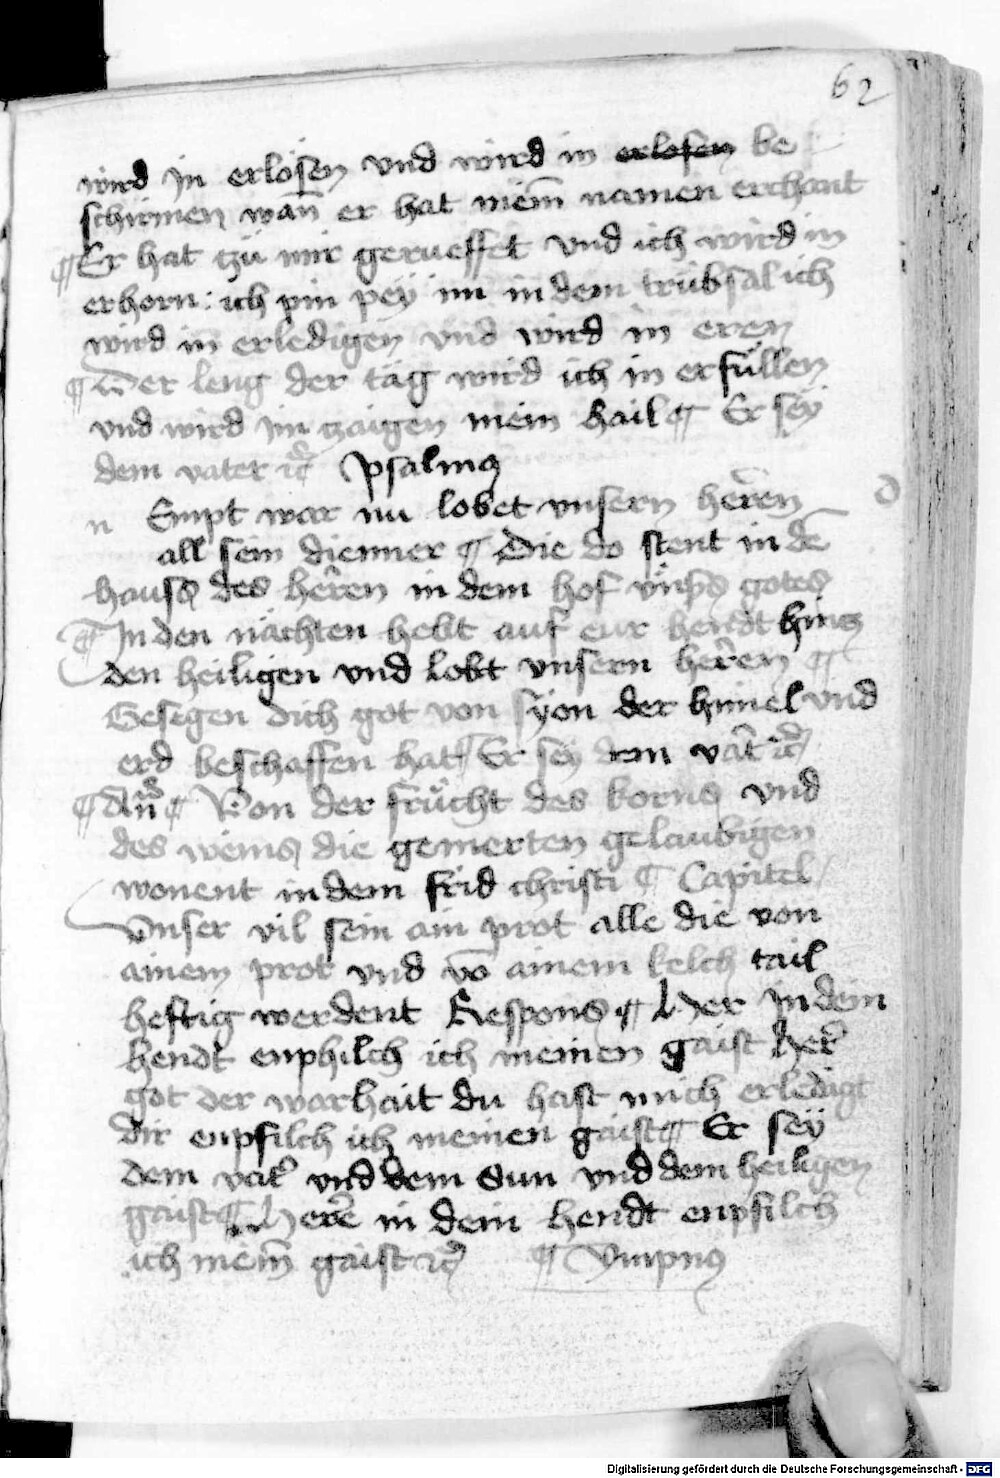 62
wird in erlösen vnd wird in erlosen be
schirmen wan̄ er hat mein̄ namen erchant
¶ Er hat tzü mir gerueffet vnd ich wird in
erhorn : ich pin peÿ im in dem trübsal ich
wird in̄ erledigen vnd wird in eren
¶ Der leng der täg wird ich in erfüllen
vnd wird im tzaigen mein hail ¶ Er seÿ
dem vater ꝛc̄ Psalmꝯ
n Empt war nu lobet vnsern herren
all sein dienner ¶ Die do stent in de̅
hauss des herren in dem hof vnss gotes
¶ In den nächten hebt auf eur hendt hinz
den heiligen vnd lobt vnsern herren ¶
Gesegen dich got von sÿon der himel vnd
erd beschaffen hat ¶ Er seÿ dem vat̉ ꝛc̄
¶ An̄ ¶ Von der frücht des korns vnd
des weins die gemerten gelaubigen
wonent in dem frid christi ¶ Capitel
Vnser vil sein ain prot alle die von
ainem prot vnd vo̅ ainem kelch tail
heftig werdent Respons ¶ Her in dein
hendt enphilch ich meinen gaist Her̉
got der warhait du hast mich erledigt
dir enpfilch ich meinen gaist ¶ Er seÿ
dem vat̉ vnd dem Sun vnd dem heiligen
gaist ¶ Here in dein hendt enpfilch
ich mein̄ gaist ꝛc̄ ¶ Ympnꝯ
Digitalisierung gefördert durch die Deutsche Forschungsgemeinschaft - DFG